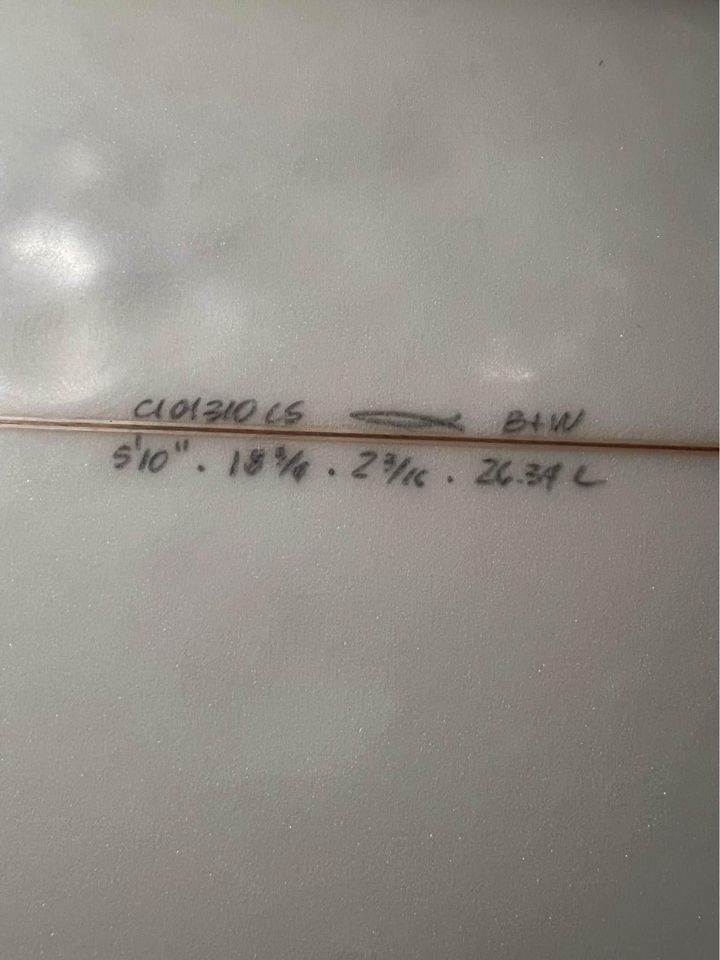 CI01310CS B+W
5'10" . 18 3/4 . 2 3/16 . 26.34 L